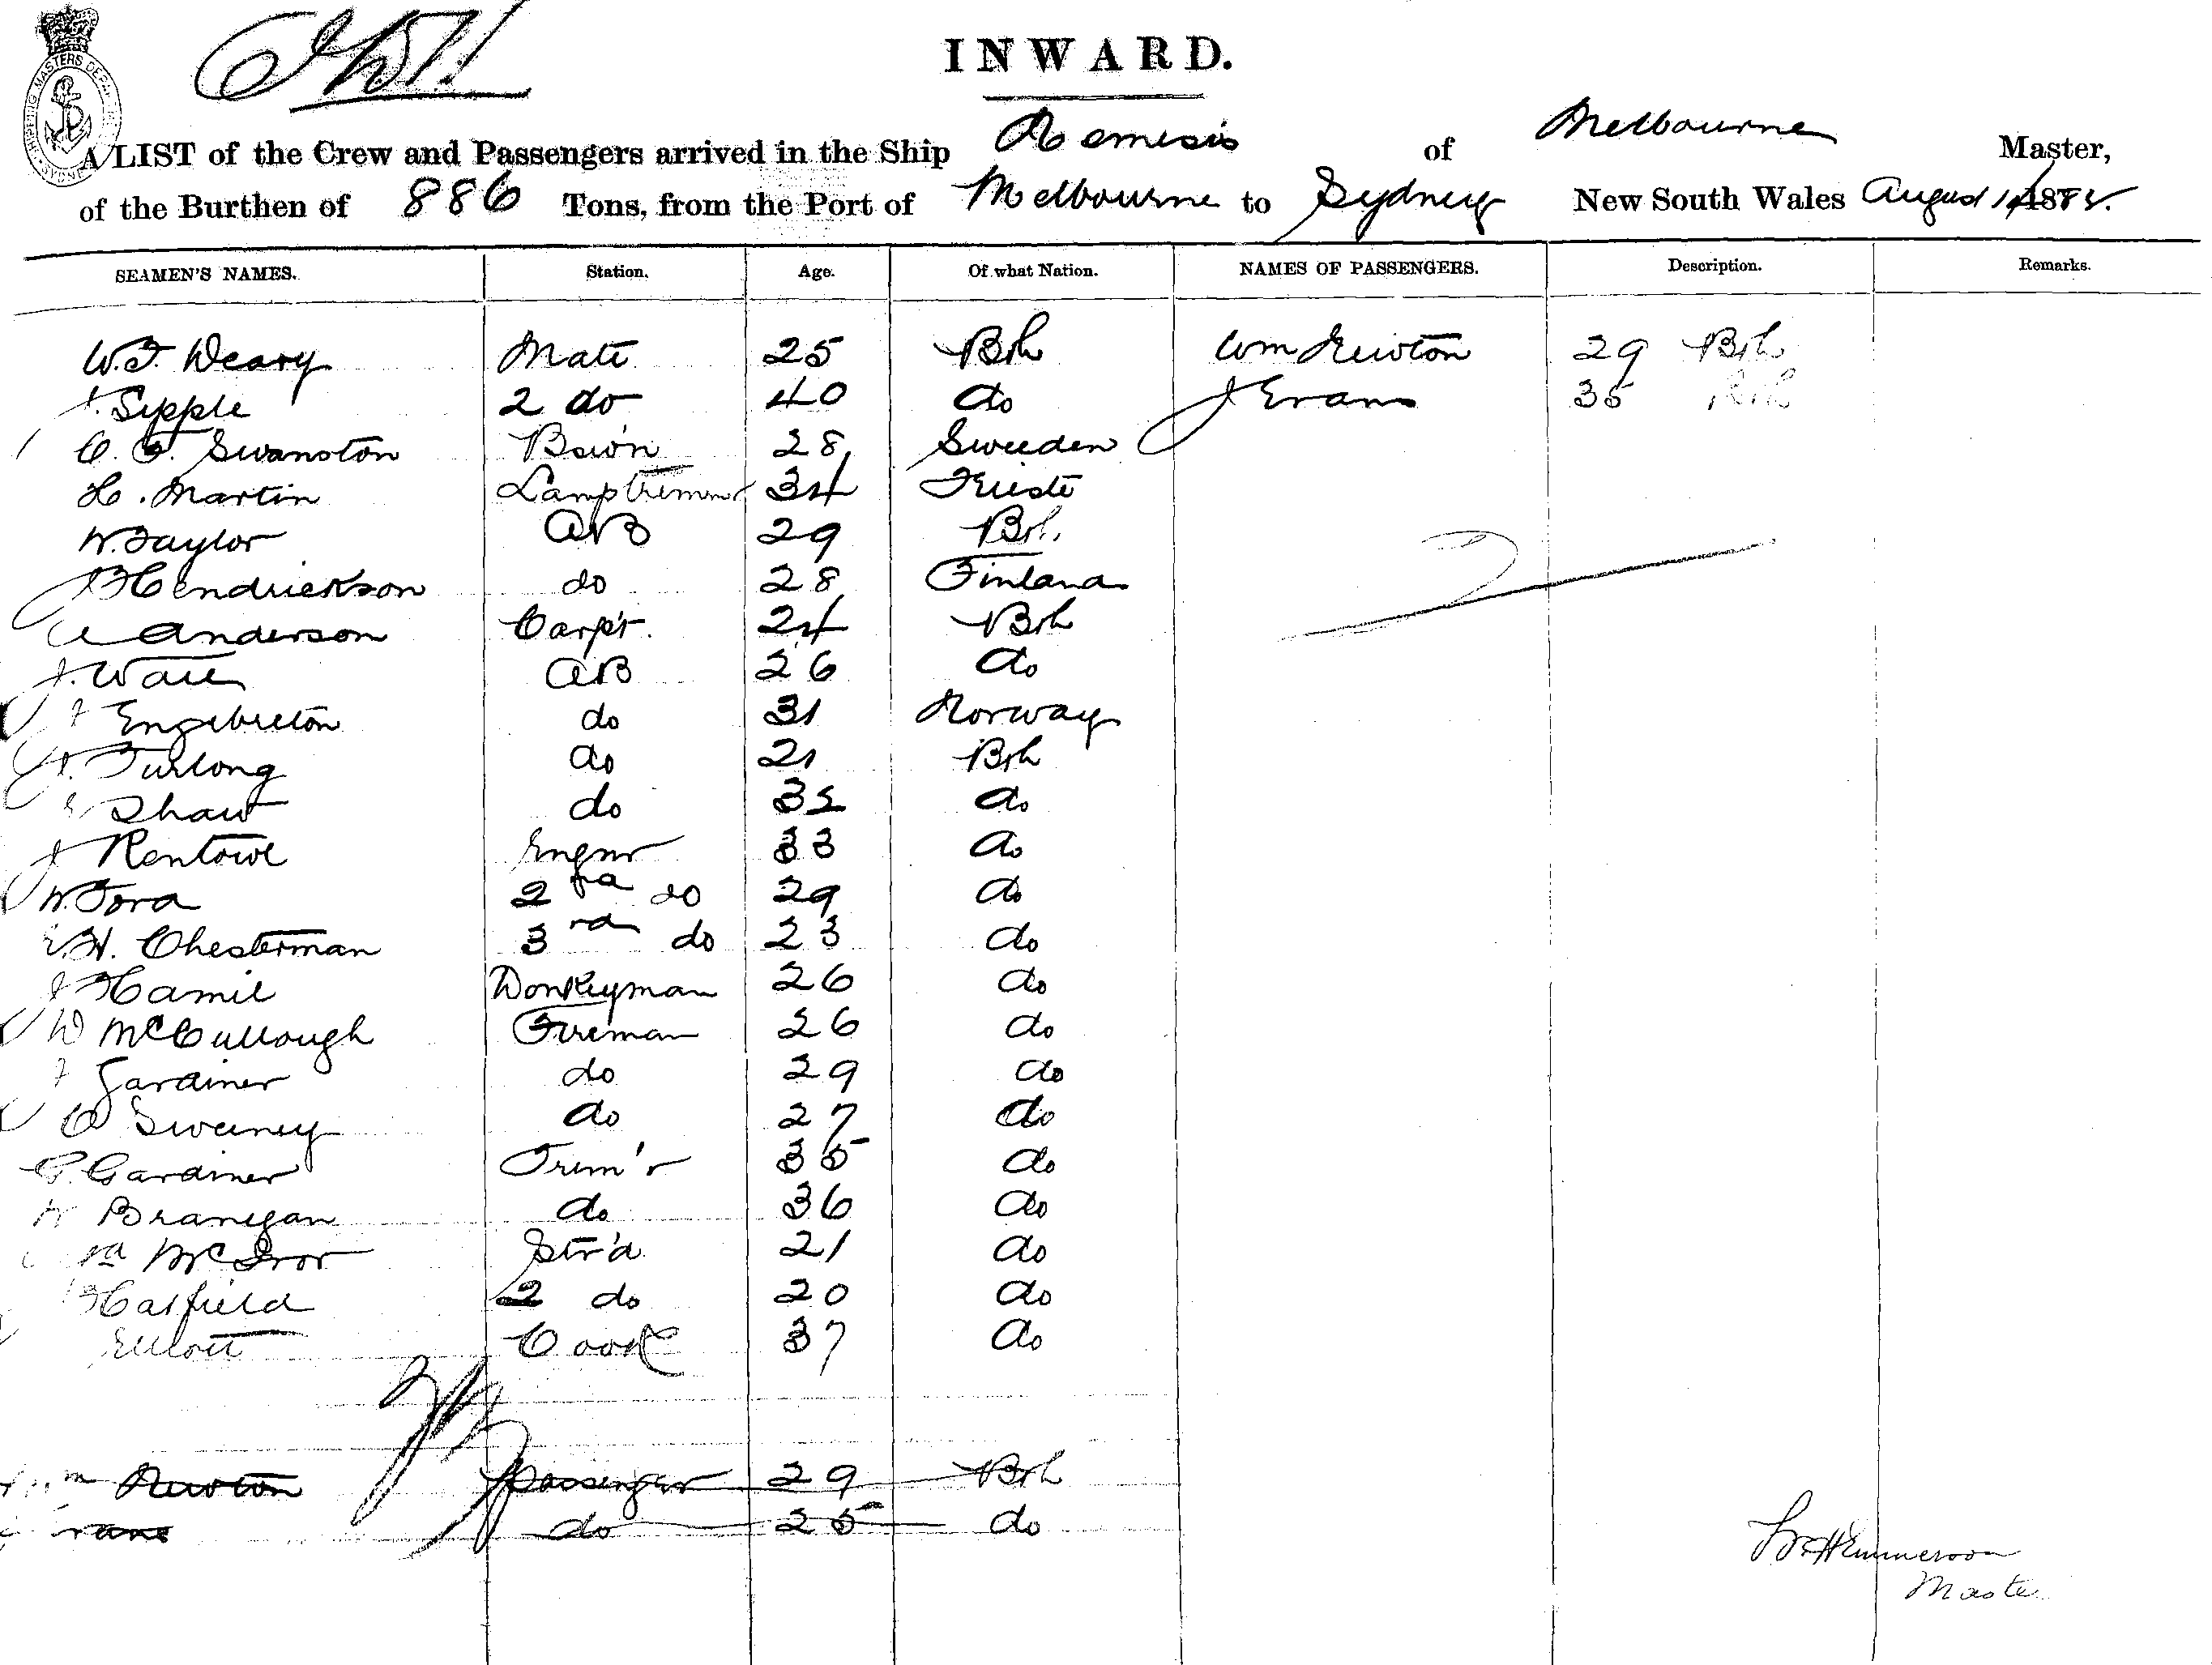 INWARD.
A LIST of the Crew and Passengers arrived in the Ship Nemesis of Melbourne Master,
of the Burthen of 886 Tons, from the Port of Melbourne to Sydney New South Wales August 188
SEAMEN'S NAMES. Station. Age. Of what Nation. NAMES OF PASSENGERS. Description. Remarks.
W.J. Weary Mate 25 Brh Wm Newton 29 Brh
J. Sepple 2 do 40 do J Evans 35 Brh
C. F. Swanston Bsw'n 28 Sweeden
H. Martin Lamptrimmr 34 Trieste
W. Taylor AB 29 Brh.
Hendrickson do 28 Finland
A Anderson Carp'r. 24 Brh
J. Ware AB 26 do
J Engebreton do 31 Norway
J. Furlong do 21 Brh
Shaw do 32 do
J Rentowl Engnr 33 do
W. Ford 2nd do 29 do
E. H. Chesterman 3rd do 23 do
J Hamil Donkeyman 26 do
W McCullough Fireman 26 do
J Gardiner do 29 do
C Sweeney do 27 do
G. Gardiner Trim'r 35 do
W Branegan do 36 do
McIvor Str'd 21 do
Hatfield 2 do 20 do
Elliott Cook 37 do
Newton passenger 29 Brh
do 25 do
Emmerson
Master